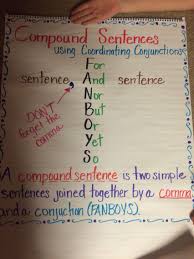 Compound Sentences
using Coordinating Conjunctions
For
sentence, And sentence
Nor
But
Or
Yet
So
DON'T
forget the
comma
A compound sentence is two simple
sentences joined together by a comma
and a conjuction (FANBOYS).